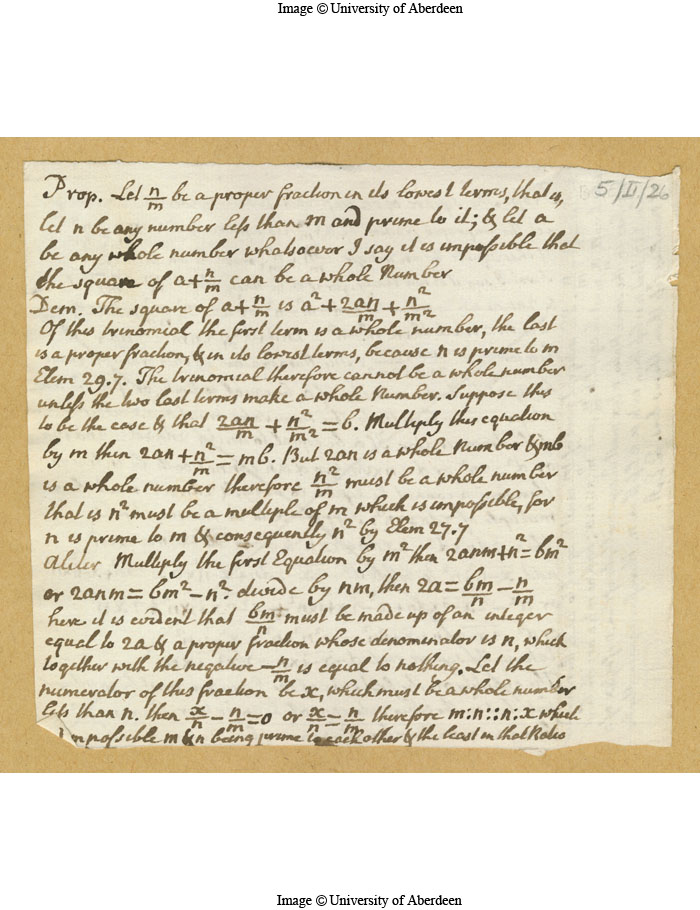 Image © University of Aberdeen
5/II/26
Prop. Let n/m be a proper fraction in its lowest terms, that is,
let n be any number less than m and prime to it; & let a
be any whole number whatsoever I say it is impossible that
the square of a+n/m can be a whole Number
Dem. The square of a+n/m is a²+2an/m+n²/m²
Of this trinomial the first term is a whole number, the last
is a proper fraction, & in its lowest terms, because n is prime to m
Elem 29.7. The trinomial therefore cannot be a whole number
unless the two last terms make a whole Number. Suppose this
to be the case & that 2an/m + n²/m² = b. Multiply this equation
by m then 2an+n²/m = mb. But 2an is a whole Number & mb
is a whole number therefore n²/m must be a whole number
that is n² must be a multiple of m which is impossible, for
n is prime to m & consequently n² by Elem 27.7
aliter Multiply the first Equation by m² then 2anm+n²=bm²
or 2anm = bm²-n². divide by nm, then 2a = bm/n - n/m
here it is evident that bm/n must be made up of an integer
equal to 2a & a proper fraction whose denominator is n, which
together with the negative -n/m is equal to nothing. Let the
numerator of this fraction be x, which must be a whole number
less than n. then x/n - n/m = 0 or x/n = n/m therefore m:n::n:x which
impossible m & n being prime to each other & the least in that Ratio
Image © University of Aberdeen